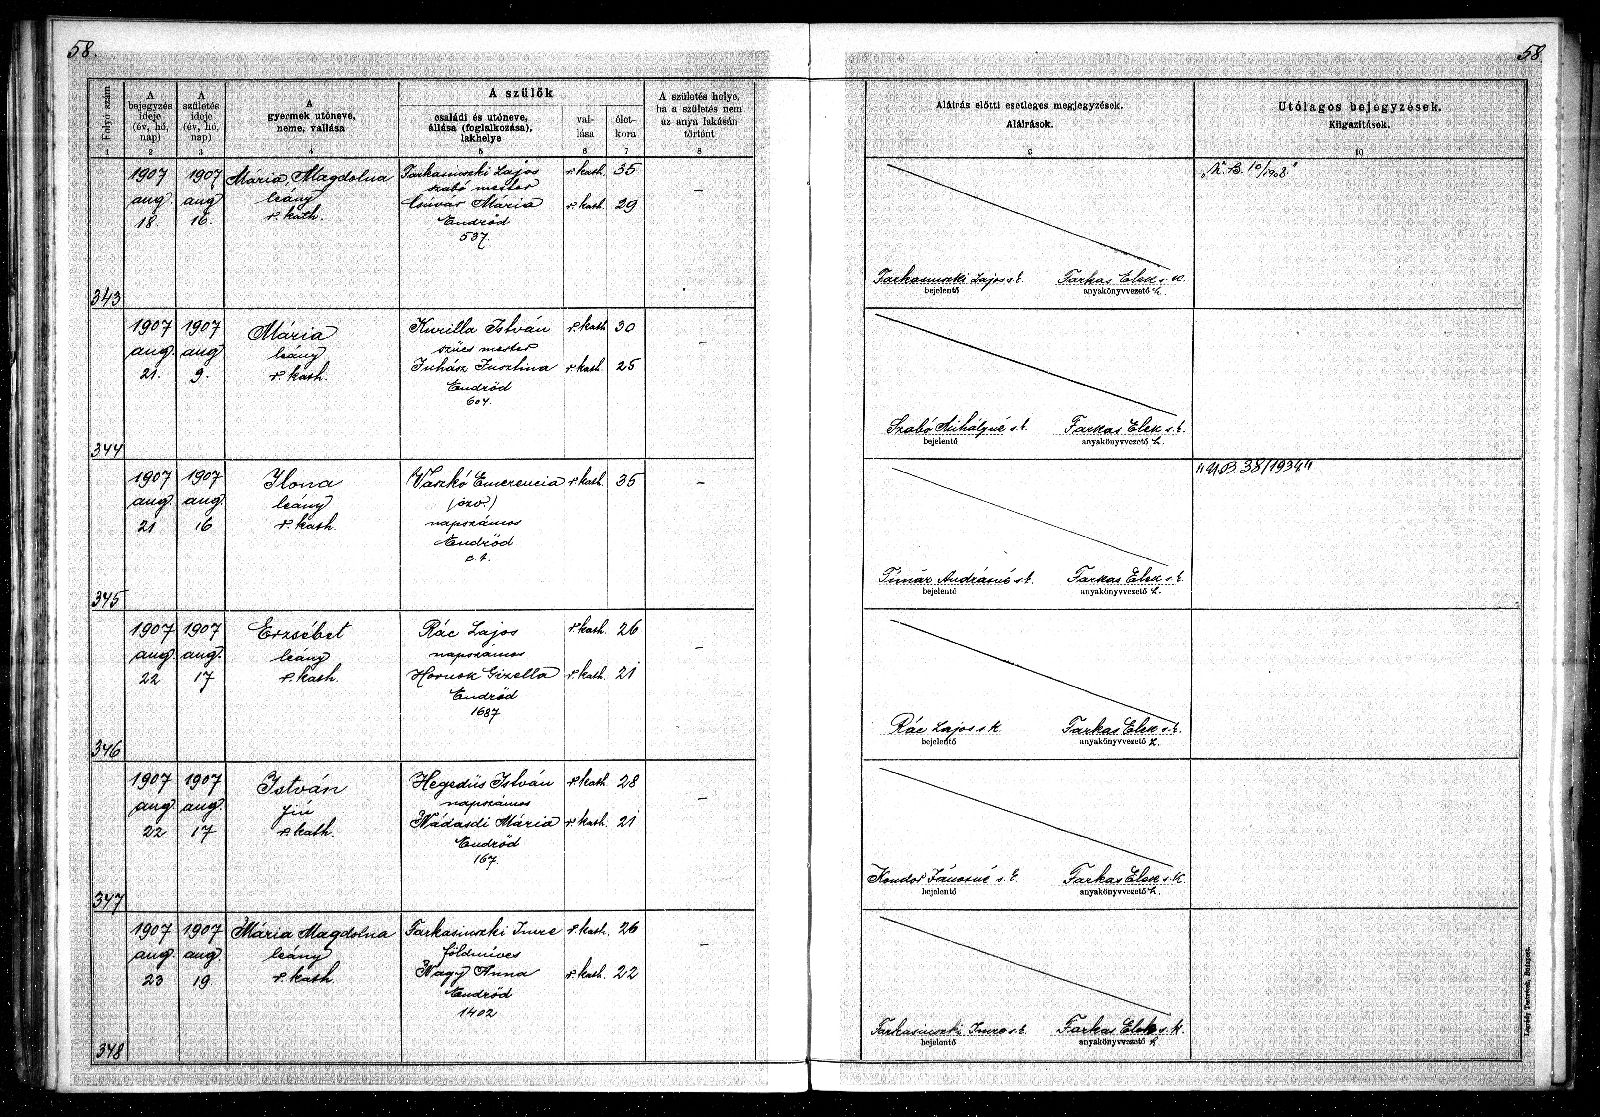 58.
58
Folyó szám
A bejegyzés ideje (év, hó, nap)
A születés ideje (év, hó, nap)
A gyermek utóneve, neme, vallása
A szülők
családi és utóneve, állása (foglalkozása), lakhelye
val-lása
élet-kora
A születés helye, ha a születés nem az anya lakásán történt
Aláírás előtti esetleges megjegyzések.
Aláírások.
Utólagos bejegyzések.
Kiigazítások.
1 2 3 4 5 6 7 8 9 10
343
1907 aug. 18.
1907 aug 16.
Mária, Magdolna
leány
r. kath.
Farkasinszki Lajos
szabó mester
Csúvár Mária
Endrőd
537.
r. kath. 35
r. kath. 29
–
Farkasinszki Lajos s. k.
bejelentő
Farkas Elek s. k.
anyakönyvvezető h.
"K. B. 10/1908"
344
1907 aug. 21.
1907 aug 9.
Mária
leány
r. kath.
Kurilla István
szűcs mester
Juhász Jusztina
Endrőd
604.
r. kath 30
r. kath. 25
–
Szabó Mihályné s. k.
bejelentő
Farkas Elek s. k.
anyakönyvvezető h.
345
1907 aug. 21
1907 aug. 16
Ilona
leány
r. kath.
Vaszkó Emerencia
(özv.)
napszámos
Endrőd
r. kath. 35
–
Tímár Andrásné s. k.
bejelentő
Farkas Elek s. k.
anyakönyvvezető h.
"U.B. 38/1934"
346
1907 aug. 22
1907 aug. 17
Erzsébet
leány
r. kath.
Rác Lajos
napszámos
Hornok Gizella
Endrőd
1687
r. kath. 26
r. kath. 21
–
Rác Lajos s. k.
bejelentő
Farkas Elek s. k.
anyakönyvvezető h.
347
1907 aug. 22
1907 aug. 17
István
fiú
r. kath.
Hegedüs István
napszámos
Nádasdi Mária
Endrőd
167.
r. kath. 28
r. kath. 21
–
Kondor Jánosné s. k.
bejelentő
Farkas Elek s. k.
anyakönyvvezető h.
348
1907 aug. 23
1907 aug. 19.
Mária Magdolna
leány
r. kath.
Farkasinszki Imre
földmíves
Nagy Anna
Endrőd
1402
r. kath. 26
r. kath. 22
–
Farkasinszki Imre s. k.
bejelentő
Farkas Elek s. k.
anyakönyvvezető h.